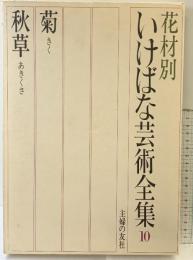 花材別
いけばな芸術全集10
菊
きく
秋草
あきくさ
主婦の友社